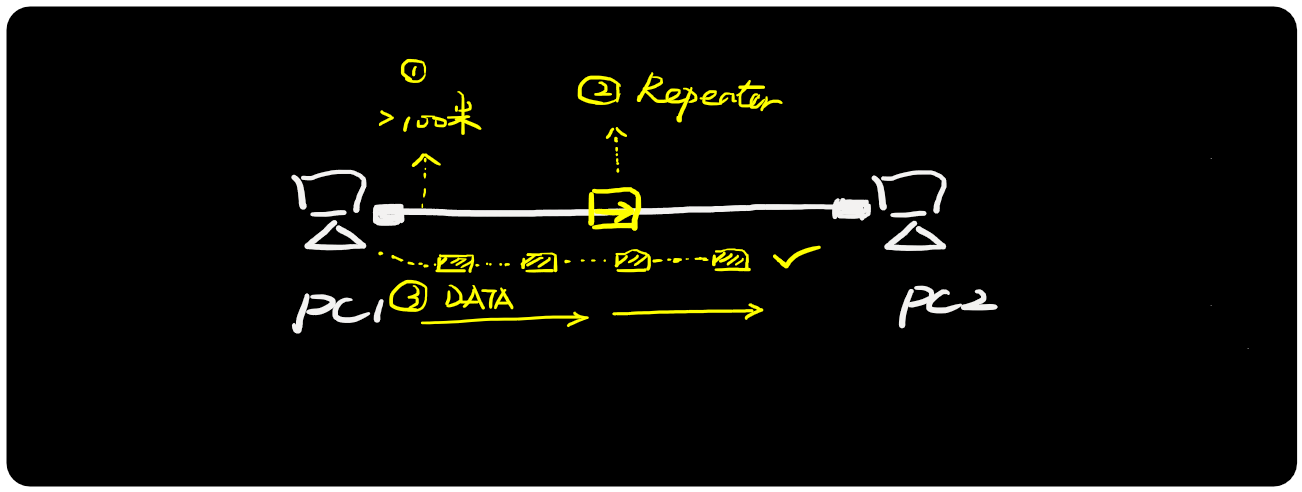 ①
>100米
② Repeater
PC1
③ DATA
PC2